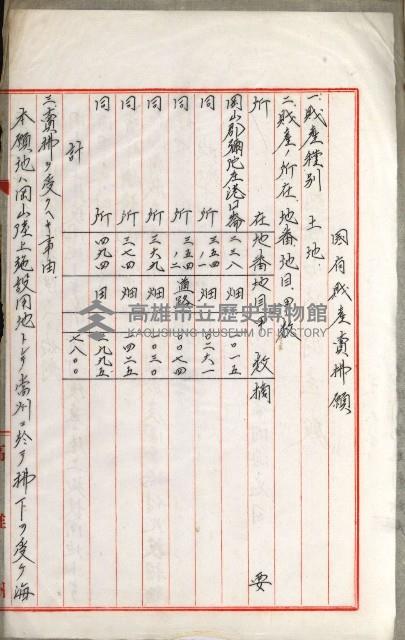 國有財產賣拂願
一、財產種別 土地
二、財產ノ所在、地番地目、甲數
所在 地番 地目 甲數 摘要
岡山郡彌陀庄港口崙 三三八 畑 〇一五
同所 三五四ノ一 畑 〇二六一
同所 三五四ノ二 道路 〇〇七四
同所 三六九 畑 〇三〇
同所 三七四 畑 二四二五
同所 四九四 田 三九九五
計 七八〇〇
三、賣拂ヲ受クヘキ事由
本願地ハ岡山陸上施設用地トシテ當州ニ於テ拂下ヲ受ケ海
高雄市立歷史博物館
KAOHSIUNG MUSEUM OF HISTORY
高雄州